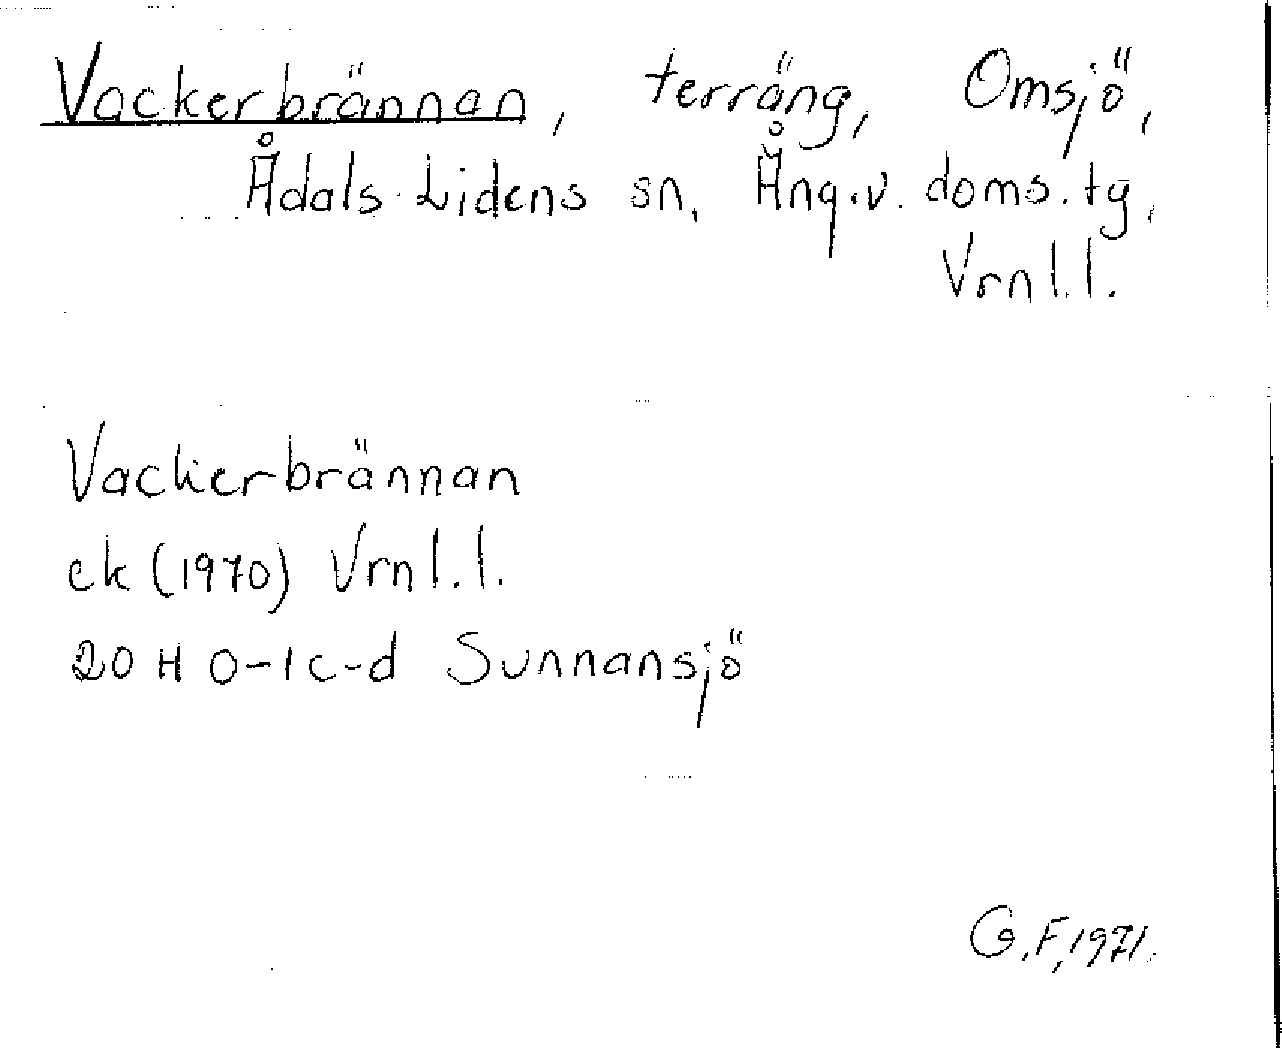 Vackerbrännan, terräng, Omsjö,
Ådals-Lidens sn, Ång.v. doms. tg,
Vrnl.l.
Vackerbrännan
ek (1970) Vrnl.l.
20 H 0-1 c-d Sunnansjö
G.F, 1971.